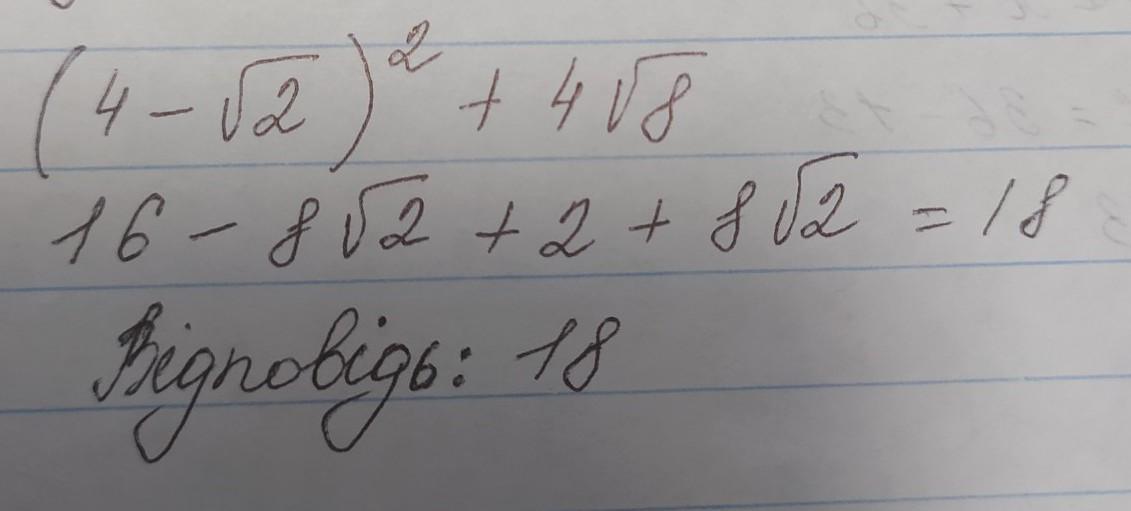 (4 - √2)² + 4√8
16 - 8√2 + 2 + 8√2 = 18
Відповідь: 18